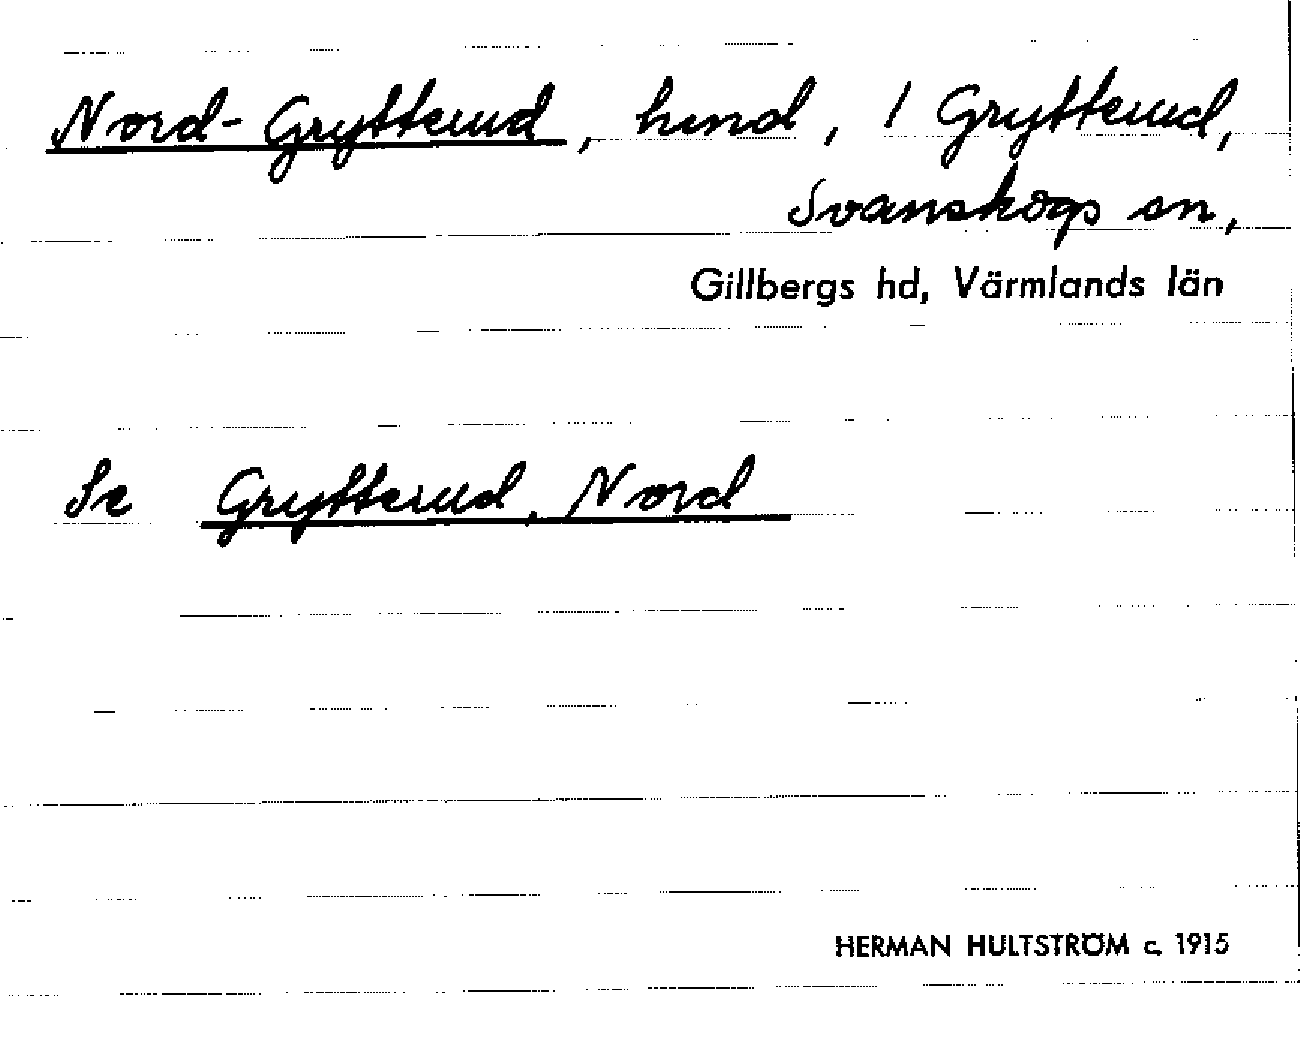 Nord-Grytterud, hmnd, 1 Grytterud,
Svanskogs sn,
Gillbergs hd, Värmlands län
Se Grytterud, Nord
HERMAN HULTSTRÖM c. 1915